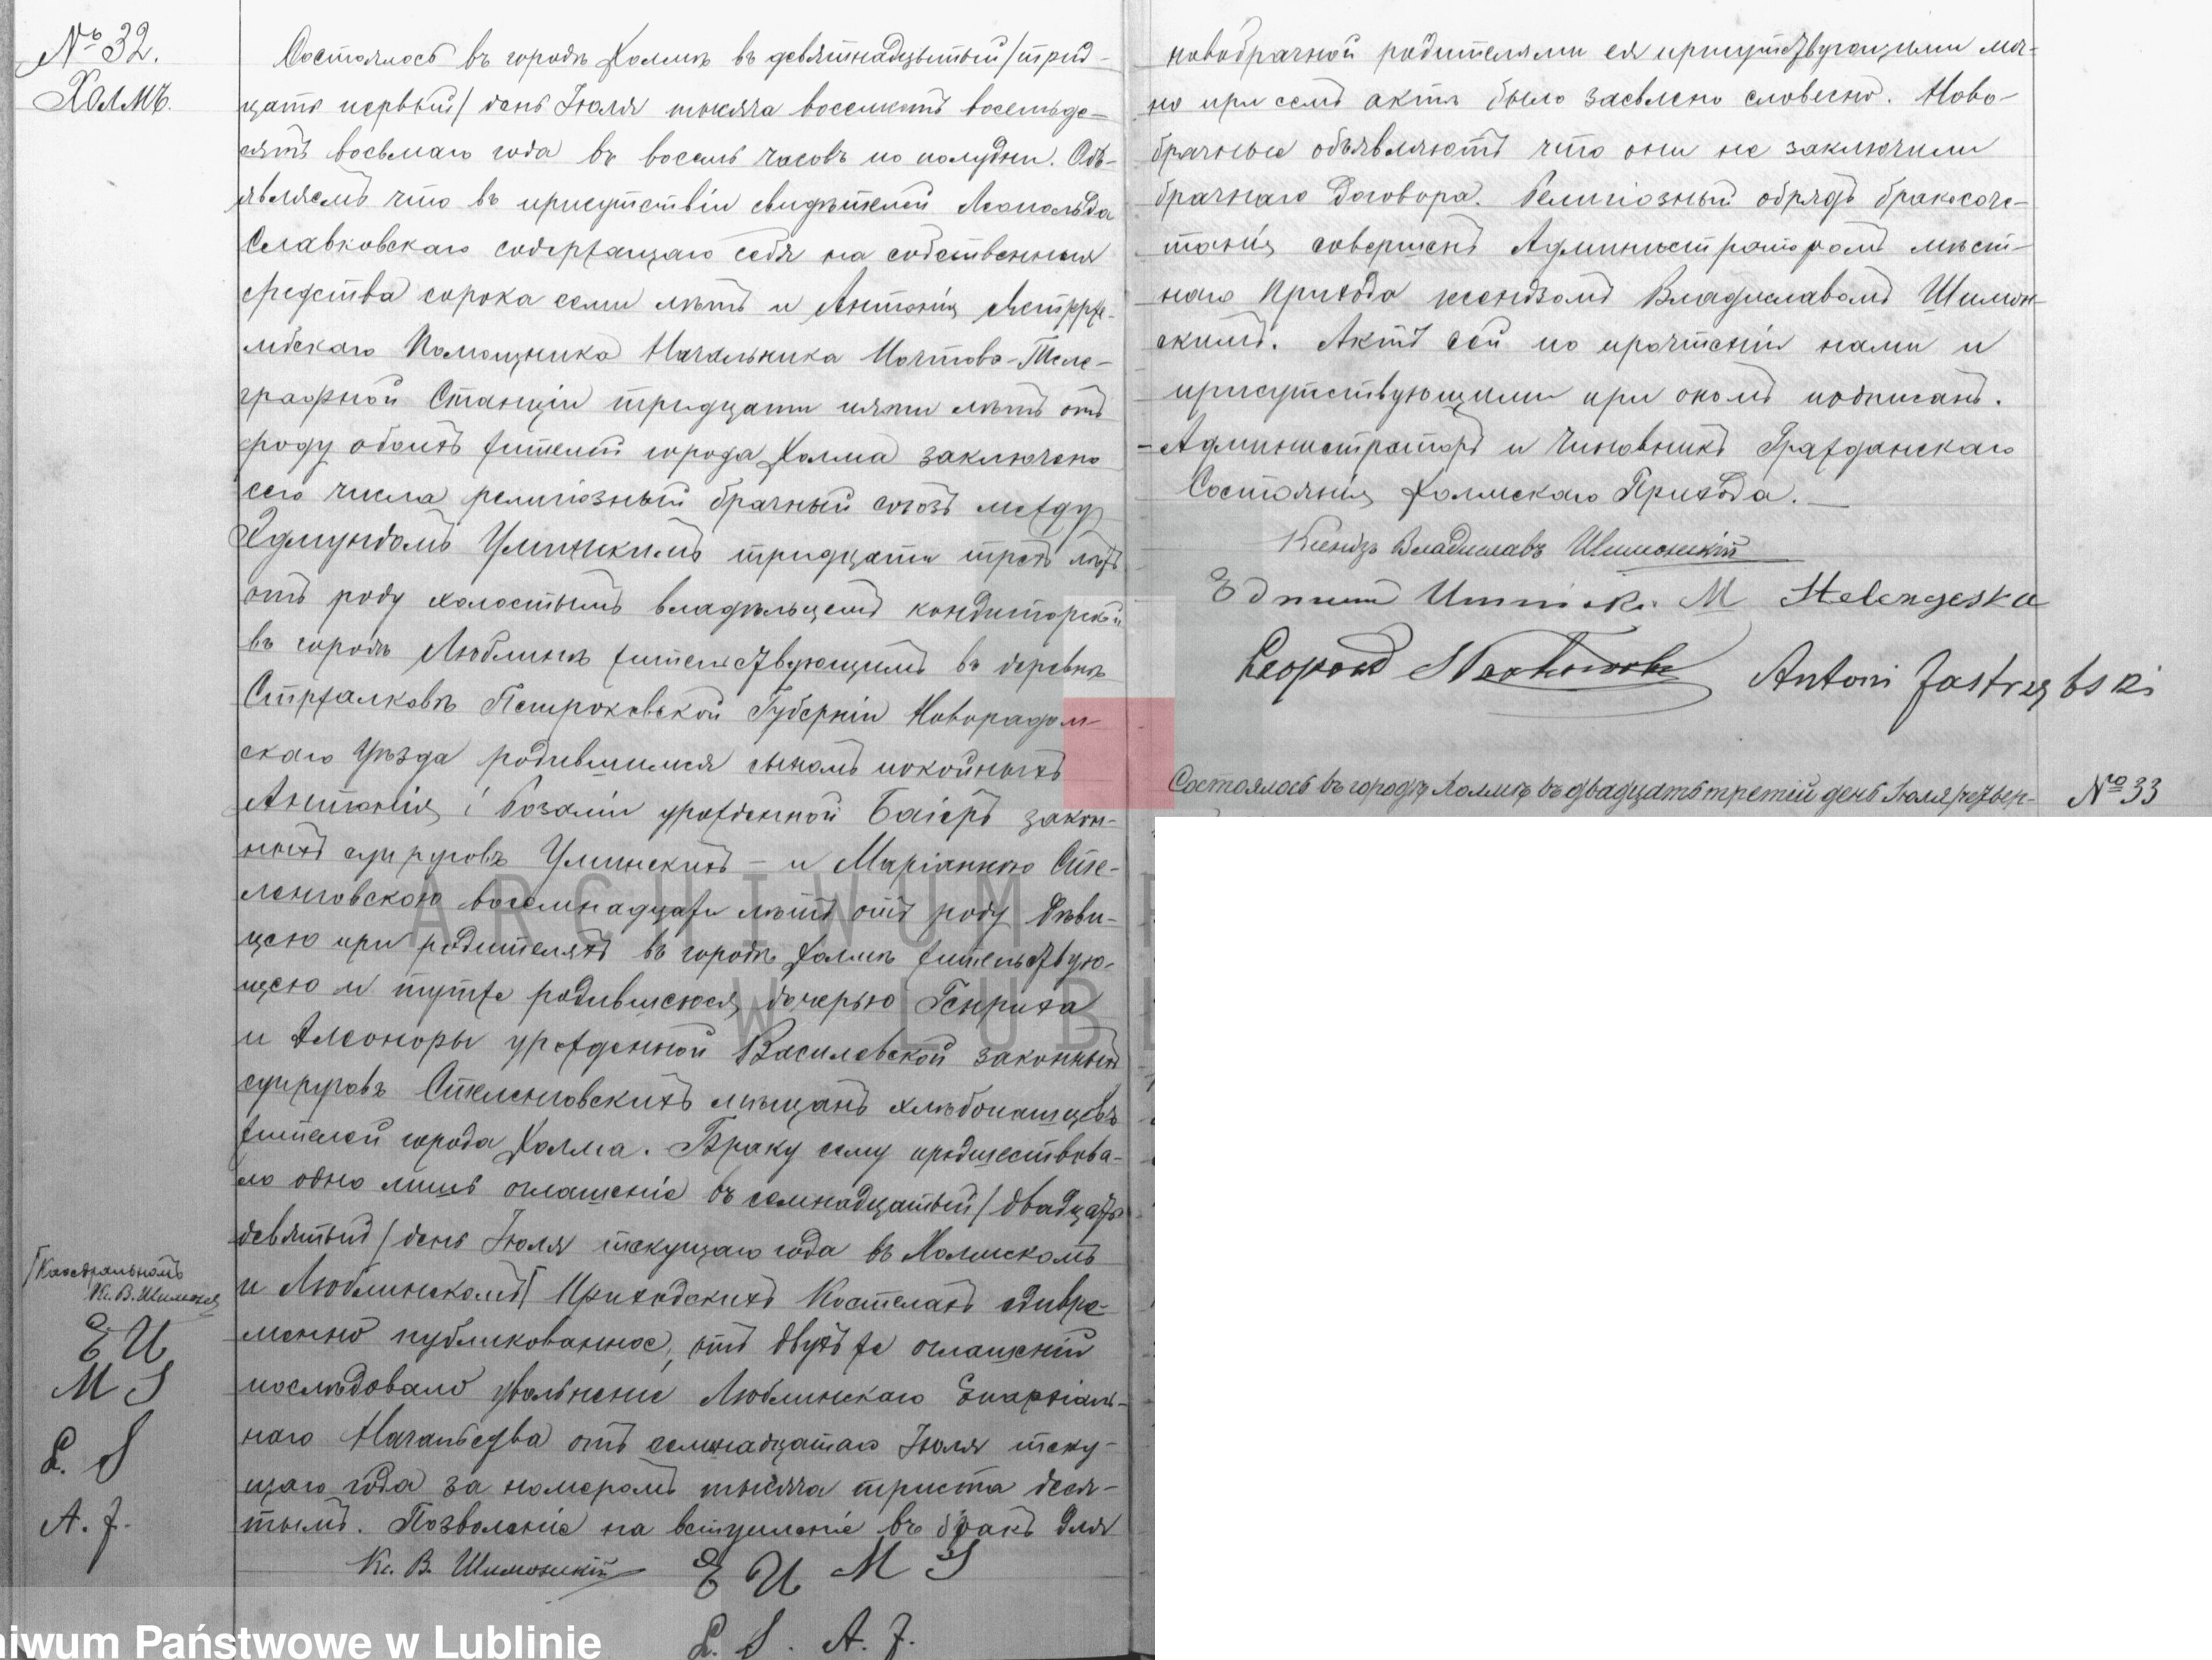 № 32.
Холмъ.
Состоялось въ городѣ Холмѣ въ девятнадцатый /трид-
цать первый/ день Іюля тысяча восемьсотъ восемьде-
сятъ восьмаго года въ восемь часовъ по полудни. Объ-
являемъ что въ присутствіи свидѣтелей Леопольда
Славковскаго содержащаго себя на собственныя
средства сорока семи лѣтъ и Антонія Ястржем-
бскаго Помощника Начальника Почтово-Теле-
графной Станціи тридцати пяти лѣтъ отъ
роду обоихъ жителей города Холма заключено
сего числа религіозный брачный союзъ между
Эдмундомъ Улинскимъ тридцати трехъ лѣтъ
отъ роду холостымъ владѣльцемъ кондиторской
въ городѣ Люблинѣ жительствующимъ въ деревнѣ
Стржалковѣ Петроковской Губерніи Новорадом-
скаго Уѣзда родившимся сыномъ покойныхъ
Антонія і Розаліи урожденной Баіеръ закон-
ныхъ супруговъ Улинскихъ – и Маріанною Сте-
ленговскою восемнадцати лѣтъ отъ роду дѣви-
цею при родителяхъ въ городѣ Холмѣ жительствую-
щею и тутже родившеюся, дочерью Генриха
и Элеоноры урожденной Василевской законныхъ
супруговъ Стеленговскихъ мѣщанъ хлѣбопашцевъ
жителей города Холма. Браку сему предшествова-
ло одно лишь оглашеніе въ семнадцатый /двадцать
девятый/ день Іюля текущаго года въ Холмскомъ
и Люблинскомъ Приходскихъ Костелахъ одновре-
менно публикованное, отъ двухъ же оглашеній
послѣдовало увольненіе Люблинскаго Епархіаль-
наго Начальства отъ семнадцатаго Іюля теку-
щаго года за номеромъ тысяча триста деся-
тымъ. Позволеніе на вступленіе въ бракъ для
Кс. В. Шимонскій
E U M S
L. S. A. J.
Каѳедральномъ
Кс. В. Шимонскій
E U
M S
L. S
A. J.
новобрачной родителями ея присутствующими лич-
но при семъ актѣ было заявлено словесно. Ново-
брачные объявляютъ что они не заключили
брачнаго договора. Религіозный обрядъ бракосоче-
танія совершенъ Администраторомъ мѣст-
наго Прихода ксендзомъ Владиславомъ Шимон-
скимъ. Актъ сей по прочтеніи нами и
присутствующими при ономъ подписанъ.
Администраторъ и Чиновникъ Гражданскаго
Состоянія Холмскаго Прихода.
Ксендзъ Владиславъ Шимонскій
Edmund M Stelengoska
Leopold Sławkowski Antoni Jastrzębski
Состоялось въ городѣ Холмѣ въ двадцать третій день Іюля /четвер-
№ 33
ARCHIWUM
W LUB
hiwum Państwowe w Lublinie